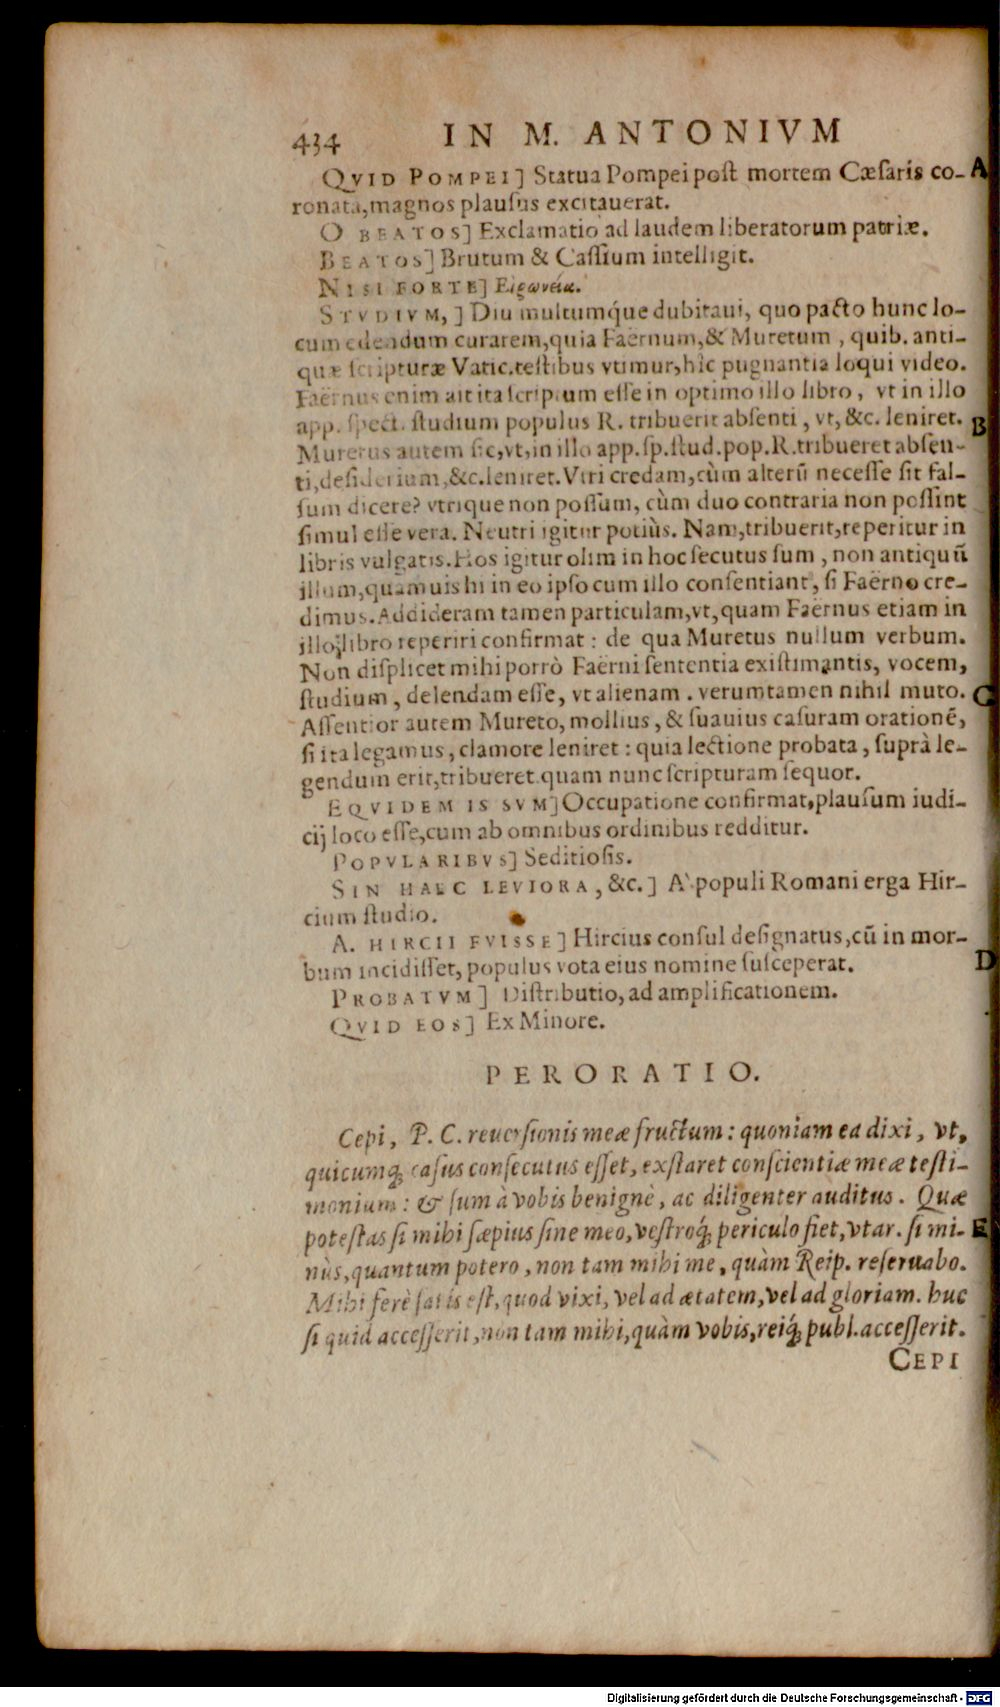 434 IN M. ANTONIVM
QVID POMPEI] Statua Pompei post mortem Cæsaris co- A
ronata, magnos plausus excitauerat.
O BEATOS] Exclamatio ad laudem liberatorum patriæ.
BEATOS] Brutum & Cassium intelligit.
NISI FORTE] Εἰρωνεία.
STVDIVM,] Diu multumq́ue dubitaui, quo pacto hunc lo-
cum edendum curarem, quia Faërnum, & Muretum, quib. anti-
quæ scripturæ Vatic. testibus vtimur, hîc pugnantia loqui video.
Faërnus enim ait ita scriptum esse in optimo illo libro, vt in illo
app. spect. studium populus R. tribuerit absenti, vt, &c. leniret. B
Muretus autem sic, vt, in illo app. sp. stud. pop. R. tribueret absen-
ti, desiderium, &c. leniret. Vtri credam, cùm alterū necesse sit fal-
sum dicere? vtrique non possum, cùm duo contraria non possint
simul esse vera. Neutri igitur potiùs. Nam, tribuerit, reperitur in
libris vulgatis. Hos igitur olim in hoc secutus sum, non antiquū
illum, quamuis hi in eo ipso cum illo consentiant, si Faërno cre-
dimus. Addideram tamen particulam, vt, quam Faërnus etiam in
illo libro reperiri confirmat: de qua Muretus nullum verbum.
Non displicet mihi porrò Faërni sententia existimantis, vocem,
studium, delendam esse, vt alienam. verumtamen nihil muto. C
Assentior autem Mureto, mollius, & suauius casuram orationē,
si ita legamus, clamore leniret: quia lectione probata, suprà le-
gendum erit, tribueret. quam nunc scripturam sequor.
EQVIDEM IS SVM] Occupatione confirmat, plausum iudi-
cij loco esse, cum ab omnibus ordinibus redditur.
POPVLARIBVS] Seditiosis.
SIN HAEC LEVIORA, &c.] A' populi Romani erga Hir-
cium studio.
A. HIRCII FVISSE] Hircius consul designatus, cū in mor-
bum incidisset, populus vota eius nomine susceperat. D
PROBATVM] Distributio, ad amplificationem.
QVID EOS] Ex Minore.
PERORATIO.
Cepi, P. C. reuersionis meæ fructum: quoniam ea dixi, vt,
quicumq; casus consecutus esset, exstaret conscientiæ meæ testi-
monium: & sum à vobis benignè, ac diligenter auditus. Quæ
potestas si mihi sæpius sine meo, vestroq́; periculo fiet, vtar. si mi- E
nùs, quantum potero, non tam mihi me, quàm Reip. reseruabo.
Mihi ferè satis est, quod vixi, vel ad ætatem, vel ad gloriam. huc
si quid accesserit, non tam mihi, quàm vobis, reiq́; publ. accesserit.
CEPI
Digitalisierung gefördert durch die Deutsche Forschungsgemeinschaft - DFG